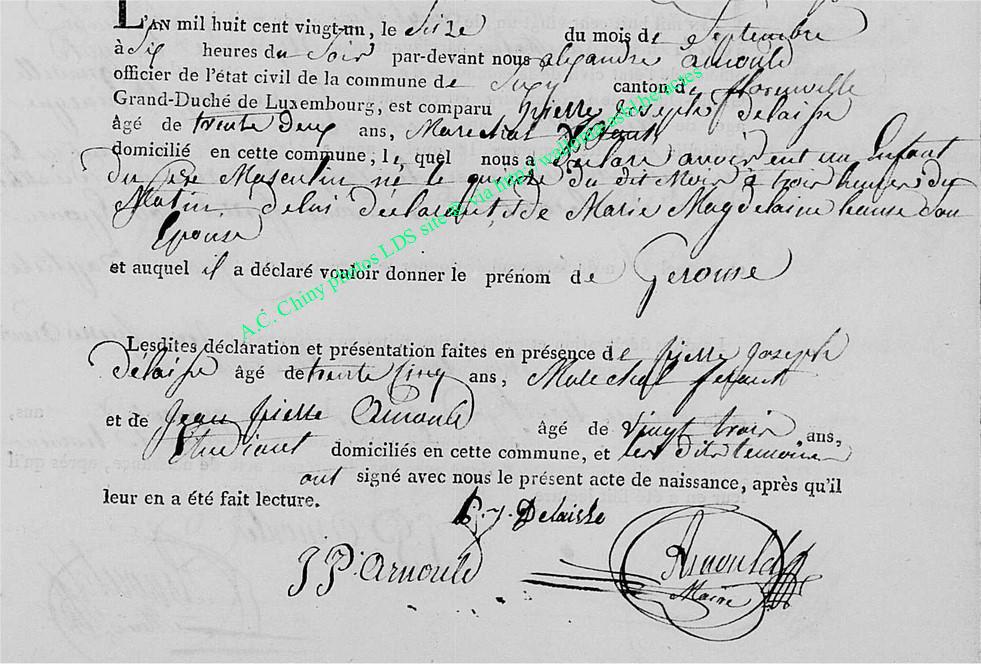 L'AN mil huit cent vingt-un, le seize du mois de Septembre
à Six heures du Soir par-devant nous alexandre arnould
officier de l'état civil de la commune de canton de florenville
Grand-Duché de Luxembourg, est comparu pierre Joseph delaisse
âgé de trente deux ans, Marechal
domicilié en cette commune; le quel nous a declaré avoir eut un Enfant
du sexe Masculin né le quinze du dit Mois à trois heures du
Matin, de lui declarant, & de Marie Magdelaine son
Epouse
et auquel il a déclaré vouloir donner le prénom de Gerome
Lesdites déclaration et présentation faites en présence de pierre Joseph
délaisse âgé de trente Cinq ans, Marechal ferant
et de Jean pierre Arnould âgé de vingt trois ans,
Etudiant domiciliés en cette commune, et les dits temoins
ont signé avec nous le présent acte de naissance, après qu'il
leur en a été fait lecture.
P. J. Delaisse
J P. Arnould
Arnould
Maire
A.C. Chiny photos LDS site @ via http://wallonia.asbl.be/actes